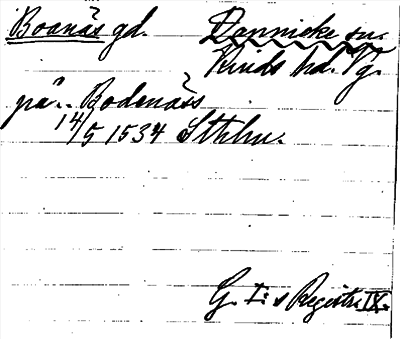 Boanäs gd. Dannicke sn.
Kinds hd. Vg.
på.. Bodenäss
14/5 1534 Sthlm.
G. I:s Registr. IX.